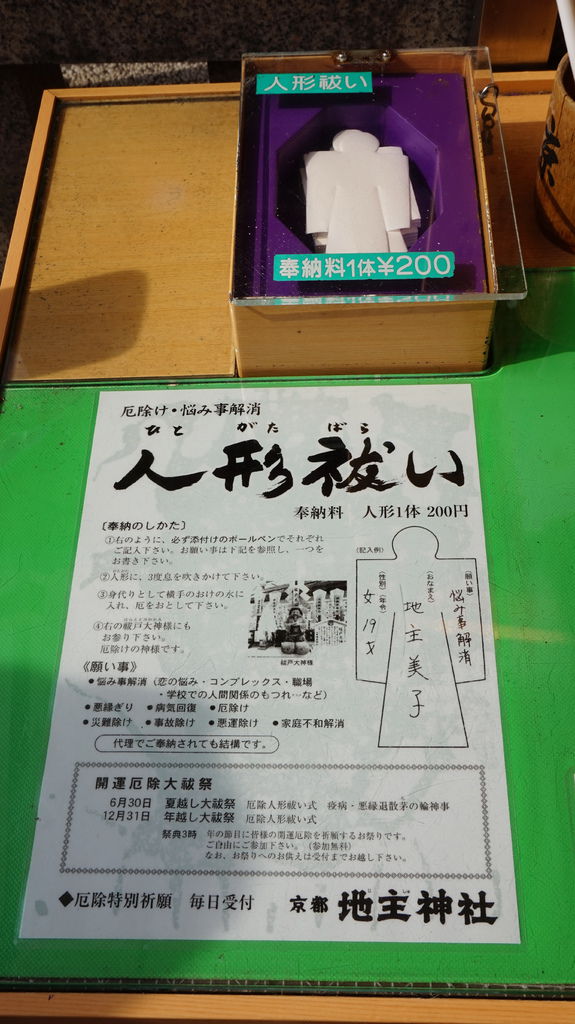 人形祓い
奉納料1体¥200
厄除け・悩み事解消
ひと がた ばら
人形祓い
奉納料 人形1体 200円
〔奉納のしかた〕
①右のように、必ず添付けのボールペンでそれぞれ
ご記入下さい。お願い事は下記を参照し、一つを
お書き下さい。
②人形に、3度息を吹きかけて下さい。
③身代りとして横手のおけの水に
入れ、厄をおとして下さい。
④右の祓戸大神様にも
お参り下さい。
厄除けの神様です。
祓戸大神様
(記入例)
(願い事)
悩み事解消
(おなまえ)
地主美子
(性別)(年令)
女 19才
《願い事》
●悩み事解消(恋の悩み・コンプレックス・職場
・学校での人間関係のもつれ…など)
●悪縁ぎり ●病気回復 ●厄除け
●災難除け ●事故除け ●悪運除け ●家庭不和解消
代理でご奉納されても結構です。
開運厄除大祓祭
6月30日 夏越し大祓祭 厄除人形祓い式 疫病・悪縁退散茅の輪神事
12月31日 年越し大祓祭 厄除人形祓い式
祭典3時 年の節目に皆様の開運厄除を祈願するお祭りです。
ご自由にご参加下さい。(参加無料)
なお、お祭りへのお供えは受付までお越し下さい。
◆厄除特別祈願 毎日受付
京都 地主神社